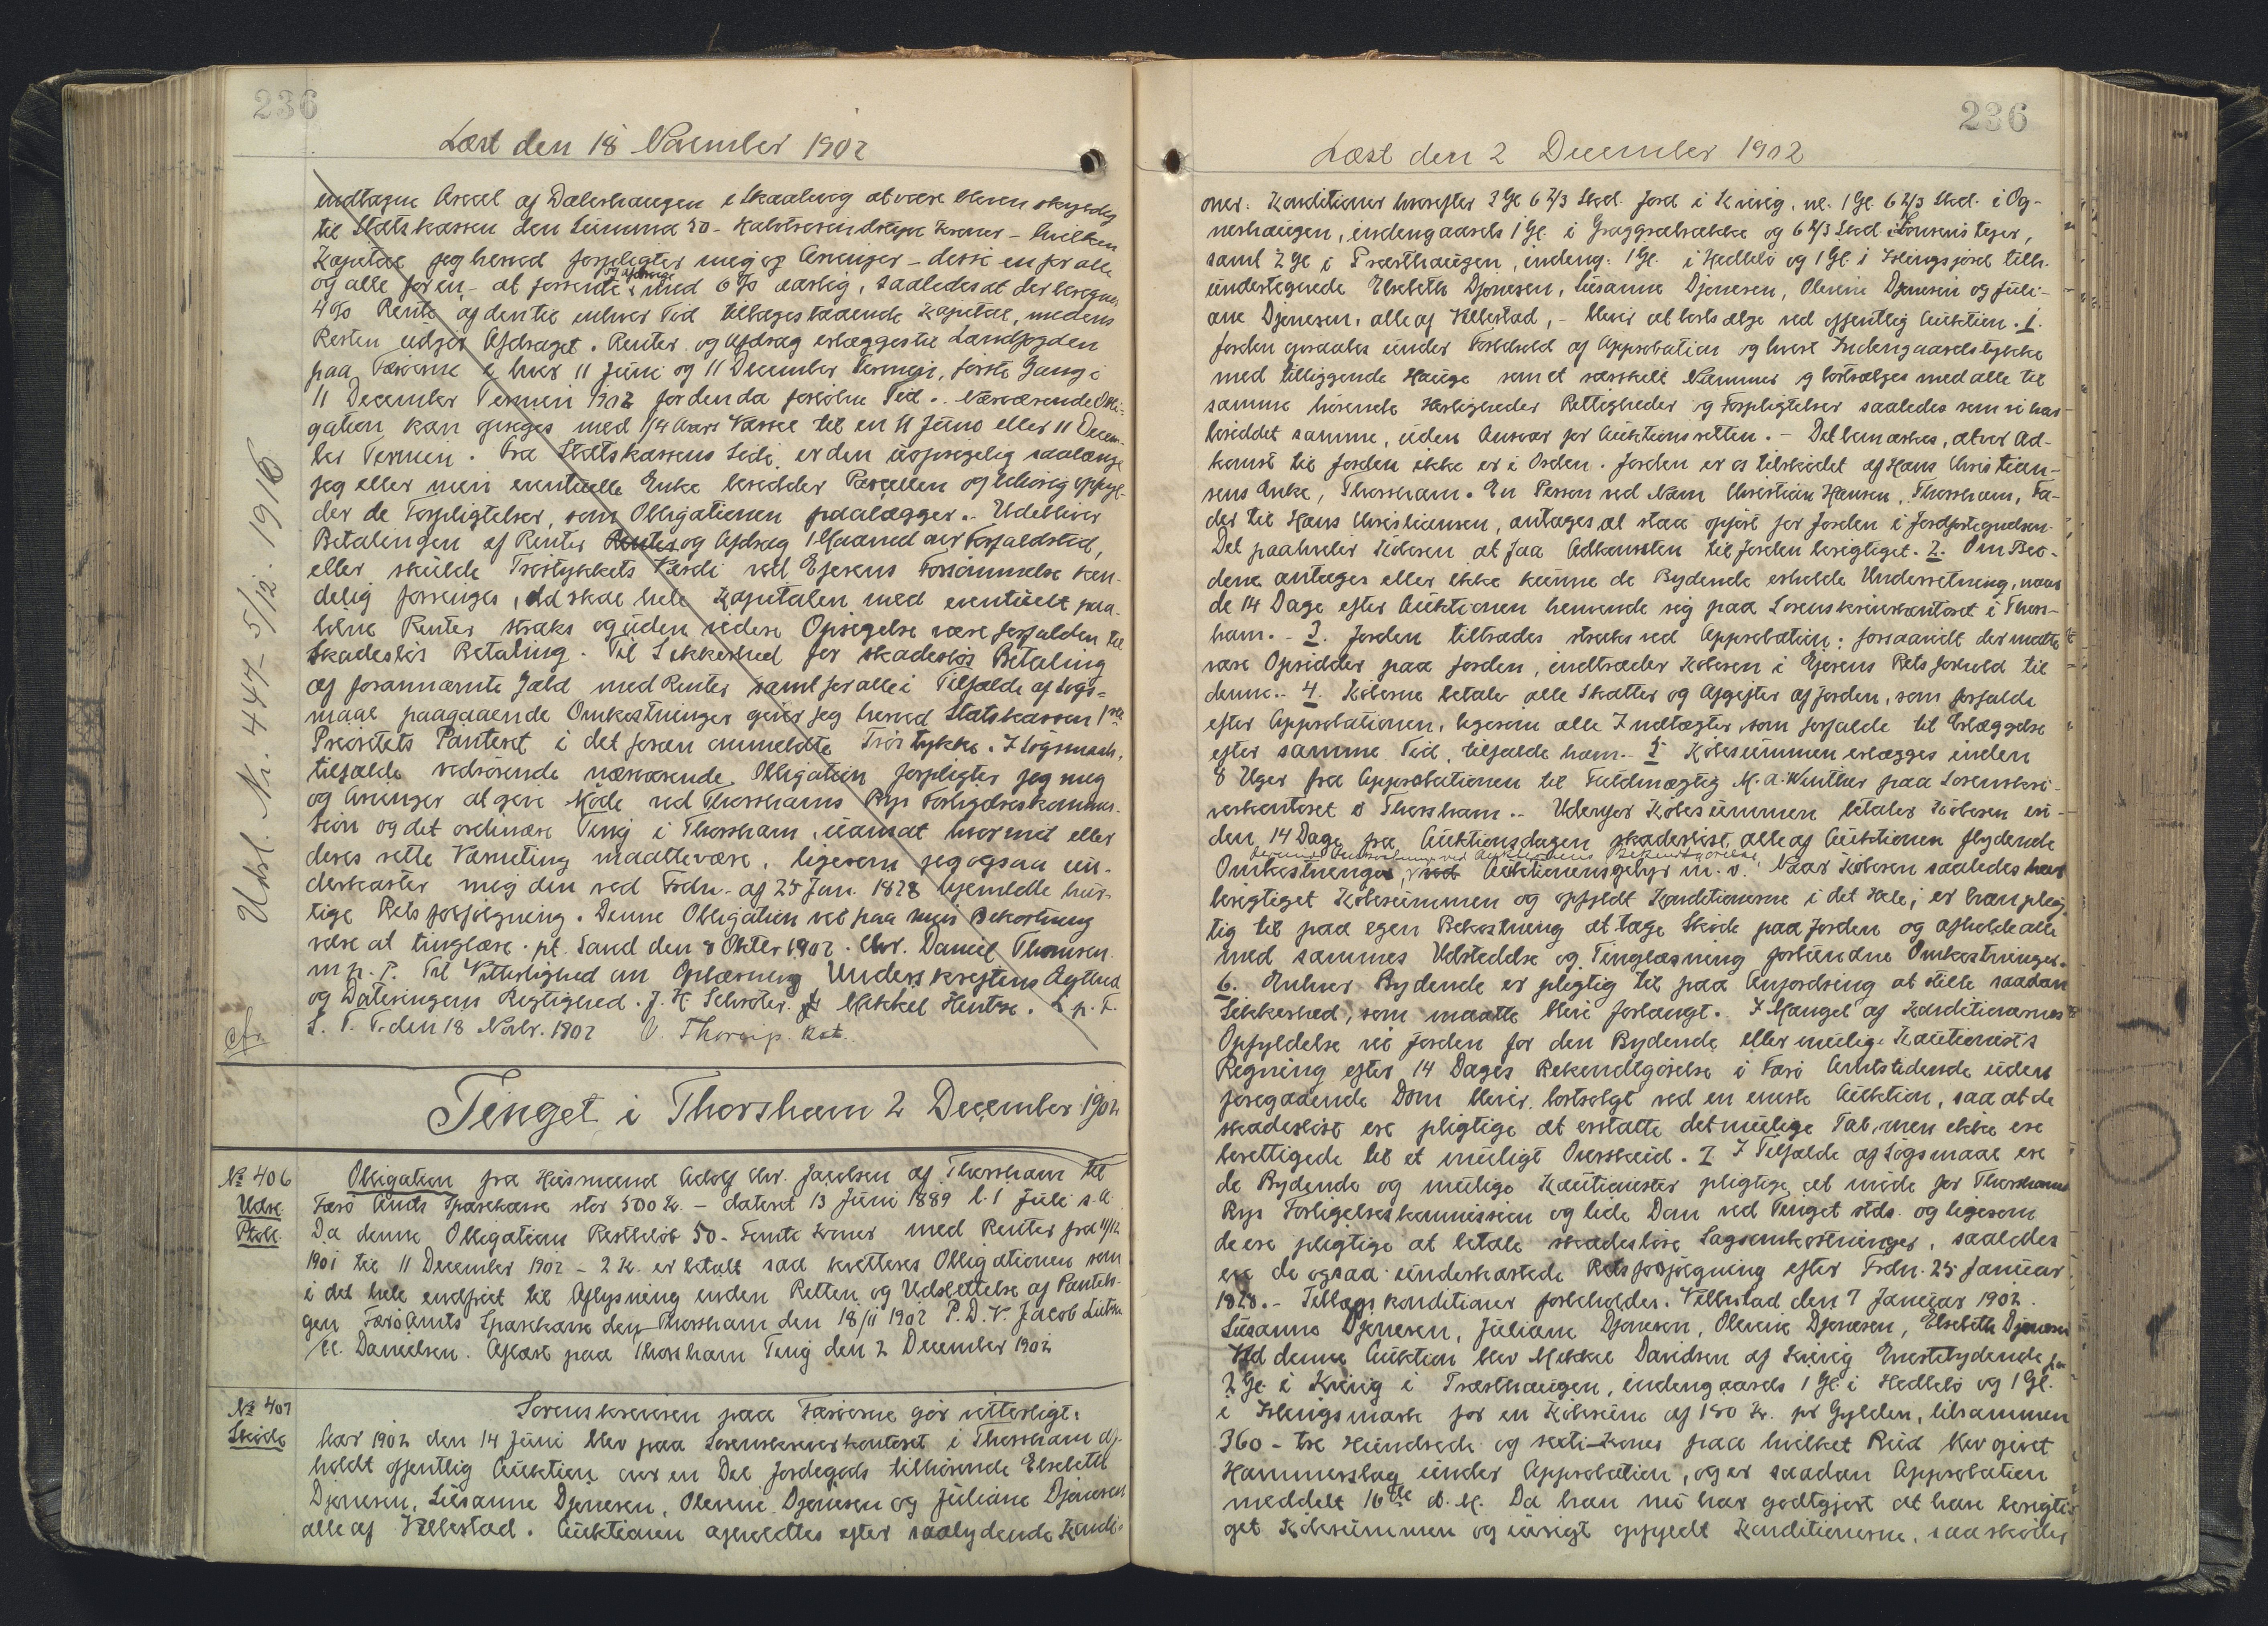 236
Læst den 18 November 1902
indtagne Areal af Dalershaugen i Skaalevig at være bleven skyldig
til Statskassen den Summa 50 - Halvtresindstyve Kroner - hvilken
Kapital jeg herved forpligter mig og Arvinger - desse en for alle
og alle for en - at forrente og afdrage med 6 % aarlig, saaledes at der beregnes
4 % Rente af den til enhver Tid tilbagestaaende Kapital, medens
Resten udgjør Afdraget. Renter og Afdrag erlægges til Landfogden
paa Færøerne i hver 11 Juni og 11 December Termin, første Gang i
11 December Termin 1902 for den da forløbne Tid. Nærværende Obli-
gation kan opsiges med 1/4 Aars Varsel til en 11 Juni eller 11 Decem-
ber Termin. Fra Statskassens Side er den uopsigelig saalænge
jeg eller min eventuelle Enke besidder Parcellen og tilbørlig opfyl-
der de Forpligtelser, som Obligationen paalægger. Udebliver
Betalingen af Renter Renter og Afdrag 1 Maaned over Forfaldstid,
eller skulde Trøstykkets Værdi ved Ejerens Forsømmelse ken-
delig forringes, da skal hele Kapitalen med eventuelt paa-
løbne Renter straks og uden videre Opsigelse være forfalden til
skadesløs Betaling. Til Sikkerhed for skadesløs Betaling
af forannævnte Gæld med Renter samt for alle i Tilfælde af Søgs-
maal paagaaende Omkostninger giver jeg herved Statskassen 1ste
Prioritets Panteret i det foran ommeldte Trøstykke. I Søgsmaals-
tilfælde vedrørende nærværende Obligation forpligter jeg mig
og Arvinger at give Møde ved Thorshavns Bys Forligelseskommis-
sion og det ordinære Ting i Thorshavn, uanset hvor mit eller
deres rette Værneting maatte være, ligesom jeg ogsaa un-
derkaster mig den ved Frdn. af 25 Jan. 1828 hjemlede hur-
tige Retsforfølgning. Denne Obligation vil paa min Bekostning
være at tinglæse. pt. Sand den 8 Oktbr 1902. Chr. Daniel Thomsen
m. p. P. Til Vitterlighed om Oplæsning Underskriftens Ægthed
og Dateringens Rigtighed. J. H. Schrøter. Mikkel Hentze. L. p. T.
S. T. T. den 18 Novbr. 1902 V. Thorup. Kst.
cfr.
Udsl. Nr. 447 - 5/12. 1916
Tinget i Thorshavn 2 December 1902
No 406
Udsl.
Ptobl.
Obligation fra Husmand Adolf Chr. Jacobsen af Thorshavn til
Færø Amts Sparekasse stor 500 Kr. - dateret 13 Juni 1889 l. 1 Juli s. A.
Da denne Obligations Restbeløb 50 - Femti Kroner med Renter fra 11/12
1901 til 11 December 1902 - 2 Kr. er betalt saa kvitteres Obligationen som
i det hele indfriet til Aflysning inden Retten og Udslettelse af Pantebo-
gen Færø Amts Sparekasse den Thorshavn den 18/11 1902 P. D. V. Jacob Lützen
M. Danielsen. Aflæst paa Thorshavn Ting den 2 December 1902
No 407
Skøde
Sorenskriveren paa Færøerne gør vitterligt:
Aar 1902 den 14 Juni blev paa Sorenskriverkontoret i Thorshavn af-
holdt offentlig Auktion over en Del Jordegods tilhørende Elsebeth
Djonesen, Susanne Djonesen, Olevine Djonesen og Juliane Djonesen
alle af Velbestad. Auktionen afholdtes efter saalydende Kondi-
236
Læst den 2 December 1902
oner: Konditioner hvorefter 3 Gl 6 2/3 Skd. Jord i Kvivig, nl. 1 Gl. 6 2/3 Skd. i Og-
nershaugen, indengaards 1 Gl. i Graggsabrække og 6 2/3 Skd. i Tonsens tejer,
samt 2 Gl i Præsthaugen, indeng. 1 Gl. i Hedlelø og 1 Gl. i Hlingsjord tilh.
undertegnede Elsebeth Djonesen, Susanne Djonesen, Olevine Djonesen og Juli-
ane Djonesen, alle af Velbestad, - bliver at bortsælge ved offentlig Auktion. 1.
Jorden opraabes under Forbehold af Approbation og hvert Indengaardsstykke
med tilliggende Hauge som et særskilt Nummer og bortsælges med alle til
samme hørende Herligheder Rettigheder og Forpligtelser saaledes som vi har
besiddet samme, uden Ansvar for Auktionsretten. - Det bemærkes, at vor Ad-
komst til Jorden ikke er i Orden. Jorden er os tilskødet af Hans Christian-
sens Enke, Thorshavn. En Person ved Navn Christian Hansen, Thorshavn, Fa-
der til Hans Christiansen, antages at staa opført for Jorden i Jordfortegnelsen.
Det paahviler Køberen at faa Adkomsten til Jorden berigtiget. 2. Om Bu-
dene antages eller ikke kunne de Bydende erholde Underretning, naar
de 14 Dage efter Auktionen henvende sig paa Sorenskriverkontoret i Thors-
havn. - 3. Jorden tiltrædes straks ved Approbation; forsaavidt der maatte
være Opsidder paa Jorden, indtræder Køberen i Ejerens Retsforhold til
denne. - 4. Køberne betale alle Skatter og Afgifter af Jorden, som forfalde
efter Approbationen, ligesom alle Indtægter, som forfalde til Erlæggelse
efter samme Tid, tilfalde ham. - 5. Købesummen erlægges inden
8 Uger fra Approbationen til Fuldmægtig M. A. Winther paa Sorenskri-
verkontoret i Thorshavn. - Udenfor Købesummen betaler Køberen in-
den 14 Dage fra Auktionsdagen skadesløst alle af Auktionen flydende
Omkostninger, ved Auktionens Bekendtgørelse
ved Auktionensgebyr m. v. Naar Køberen saaledes har
berigtiget Købesummen og opfyldt Konditionerne i det Hele, er han plig-
tig til paa egen Bekostning at tage Skøde paa Jorden og afholde alle
med sammes Udstedelse og Tinglæsning forbundne Omkostninger.
6. Enhver Bydende er pligtig til paa Anfordring at stille saadan
Sikkerhed, som maatte blive forlangt. I Mangel af Konditionernes
Opfyldelse vil Jorden for den Bydende eller mulige Kautionists
Regning efter 14 Dages Bekendtgørelse i Færø Amtstidende uden
foregaaende Dom blive bortsolgt ved en eneste Auktion, saa at de
skadesløst ere pligtige at erstatte det mulige Tab, men ikke ere
berettigede til et muligt Overskud. 7. I Tilfælde af Søgsmaal ere
de Bydende og mulige Kautionister pligtige at møde for Thorshavns
Bys Forligelseskommission og lide Dom ved Tinget stds. og ligesom
de ere pligtige at betale skadesløse Sagsomkostninger, saaledes
ere de ogsaa underkastede Retsforfølgning efter Frdn. 25 Januar
1828. - Tillægskonditioner forbeholdes. Velbestad den 7 Januar 1902.
Susanne Djonesen, Juliane Djonesen, Olevine Djonesen, Elsebeth Djonesen
Ved denne Auktion blev Mikkel Davidsen af Kvivig Enestebydende for
2 Gl. i Kvivig i Præsthaugen, indengaards 1 Gl. i Hedlelø og 1 Gl.
i Hlengsmark for en Købesum af 180 Kr. pr Gylden, tilsammen
360 - tre Hundrede og sexti - Kroner paa hvilket Bud blev givet
Hammerslag under Approbation, og er saadan Approbation
meddelt 16de d. M. Da han nu har godtgjort at have berigti-
get Købesummen og iøvrigt opfyldt Konditionerne, saa skødes